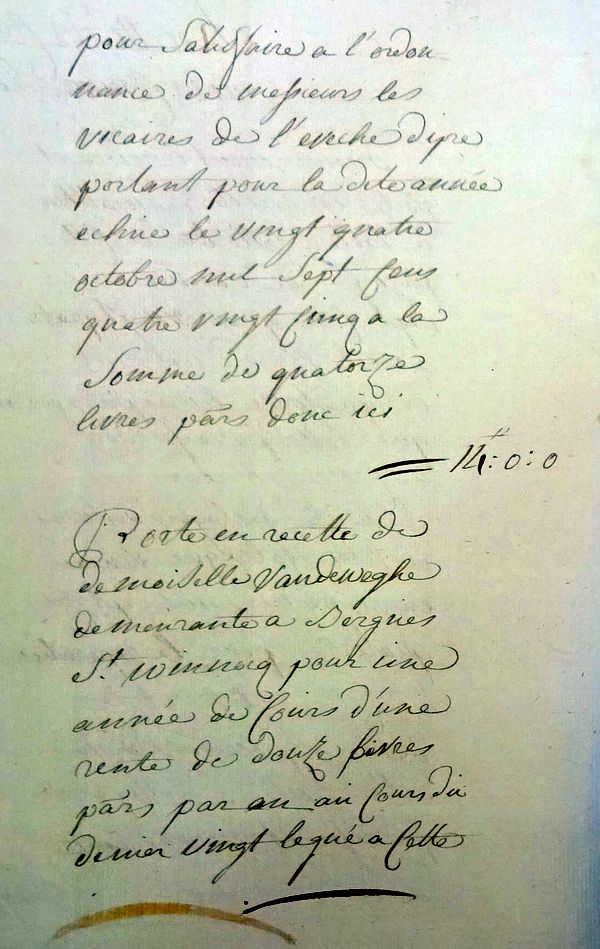 pour Satisfaire a l'ordon
nance de messieurs les
vicaires de l'eveche dipre
portant pour la dite année
echue le vingt quatre
octobre mil Sept Cens
quatre vingt Cinq a la
Somme de quatorze
livres paris donc ici
14:0:0
Porte en recette de
demoiselle Vandeweghe
demeurante a Bergues
St winnocq pour une
année de Cours d'une
rente de douze livres
paris par an au Cours du
denier vingt legué a Cette